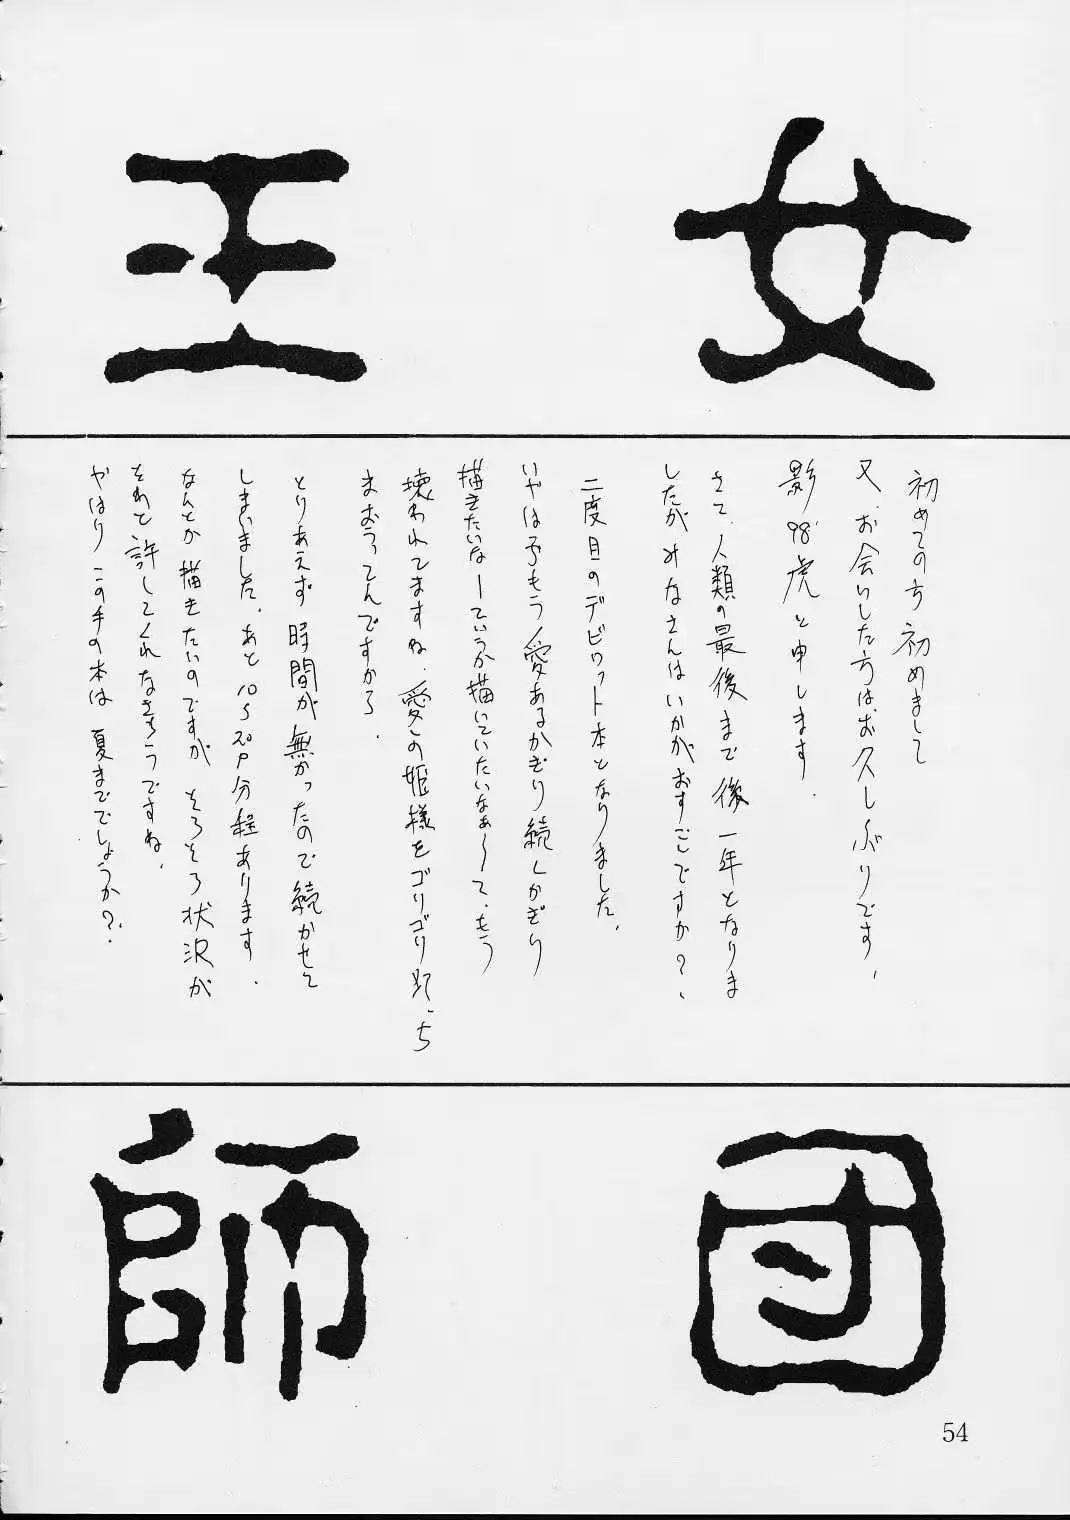 王女
初めての方初めまして
又、お会いした方はお久しぶりです、
影98'虎と申します.
さて、人類の最後まで後一年となりま
したがみなさんはいかがおすごしですか?、
二度目のデビット本となりました、
いやは予もう愛あるかぎり続くかぎり
描きたいなーていうか描いていたいなぁ〜て、もう
壊われてますね、愛の姫様をゴリゴリ
まおうってんですから、
とりあえず時間が無かったので続かせて
しまいました、あと10〜20P分程あります.
なんとか描きたいのですがそろそろ状況が
それを許してくれなさそうですね、
やはりこの手の本は夏まででしょうか?、
師団
54